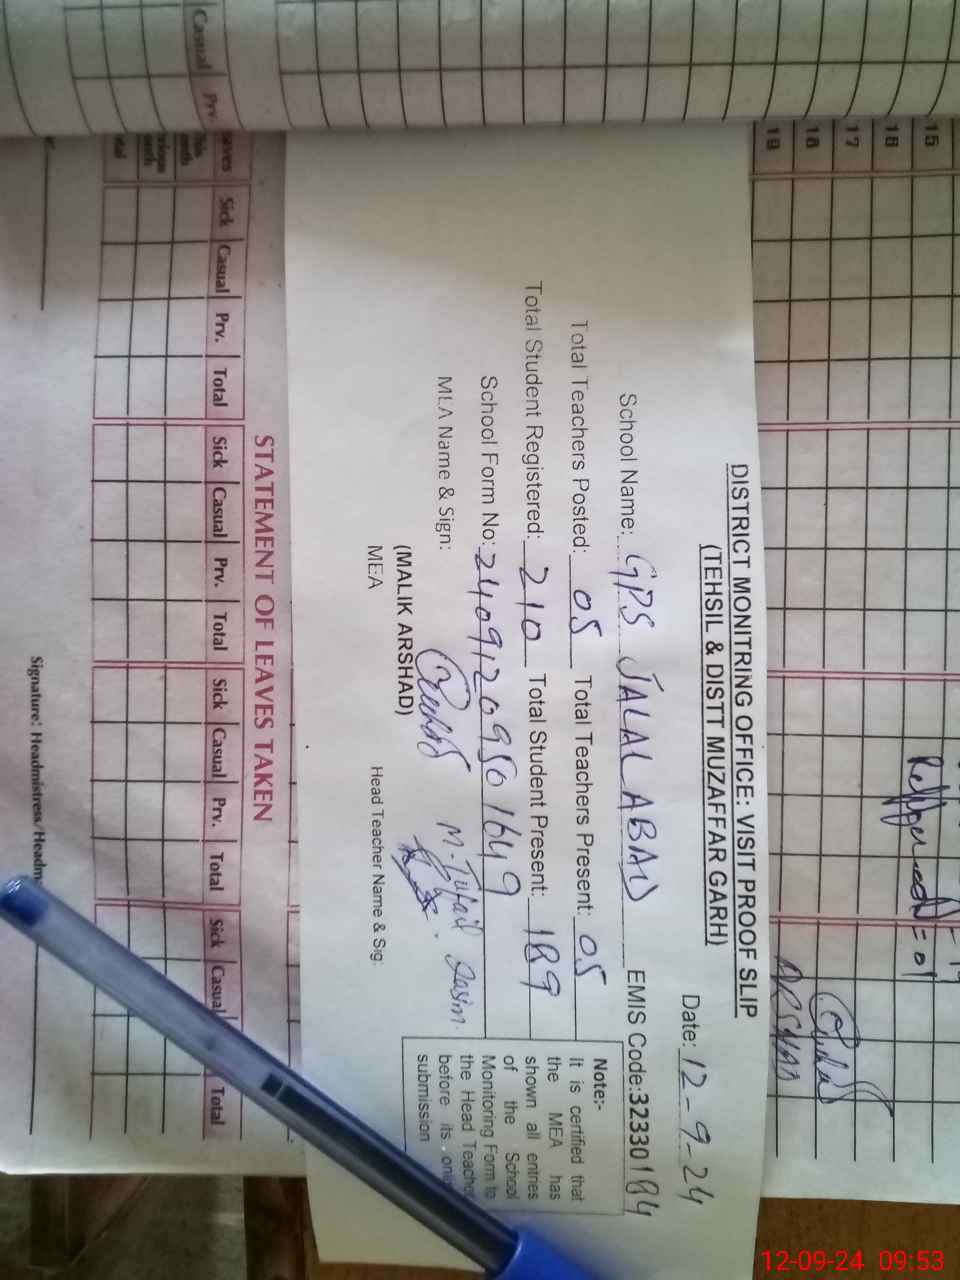 15
16
17
18
19
= 01
ARSHAD
DISTRICT MONITRING OFFICE: VISIT PROOF SLIP
(TEHSIL & DISTT MUZAFFAR GARH)
Date: 12-9-24
School Name: GPS JALAL ABAD EMIS Code:32330184
Total Teachers Posted: 05 Total Teachers Present: 05
Total Student Registered: 210 Total Student Present: 189
School Form No: 24091209501649
MEA Name & Sign:
M. Tufail Qasim.
(MALIK ARSHAD)
MEA
Head Teacher Name & Sig:
Note:-
It is certified that
the MEA has
shown all entries
of the School
Monitoring Form to
the Head Teacher
before its onli
submission
STATEMENT OF LEAVES TAKEN
Casual Prv.
Sick Casual Prv. Total Sick Casual Prv. Total Sick Casual Prv. Total Sick Casual Total
Signature: Headmistress/Headm
12-09-24 09:53